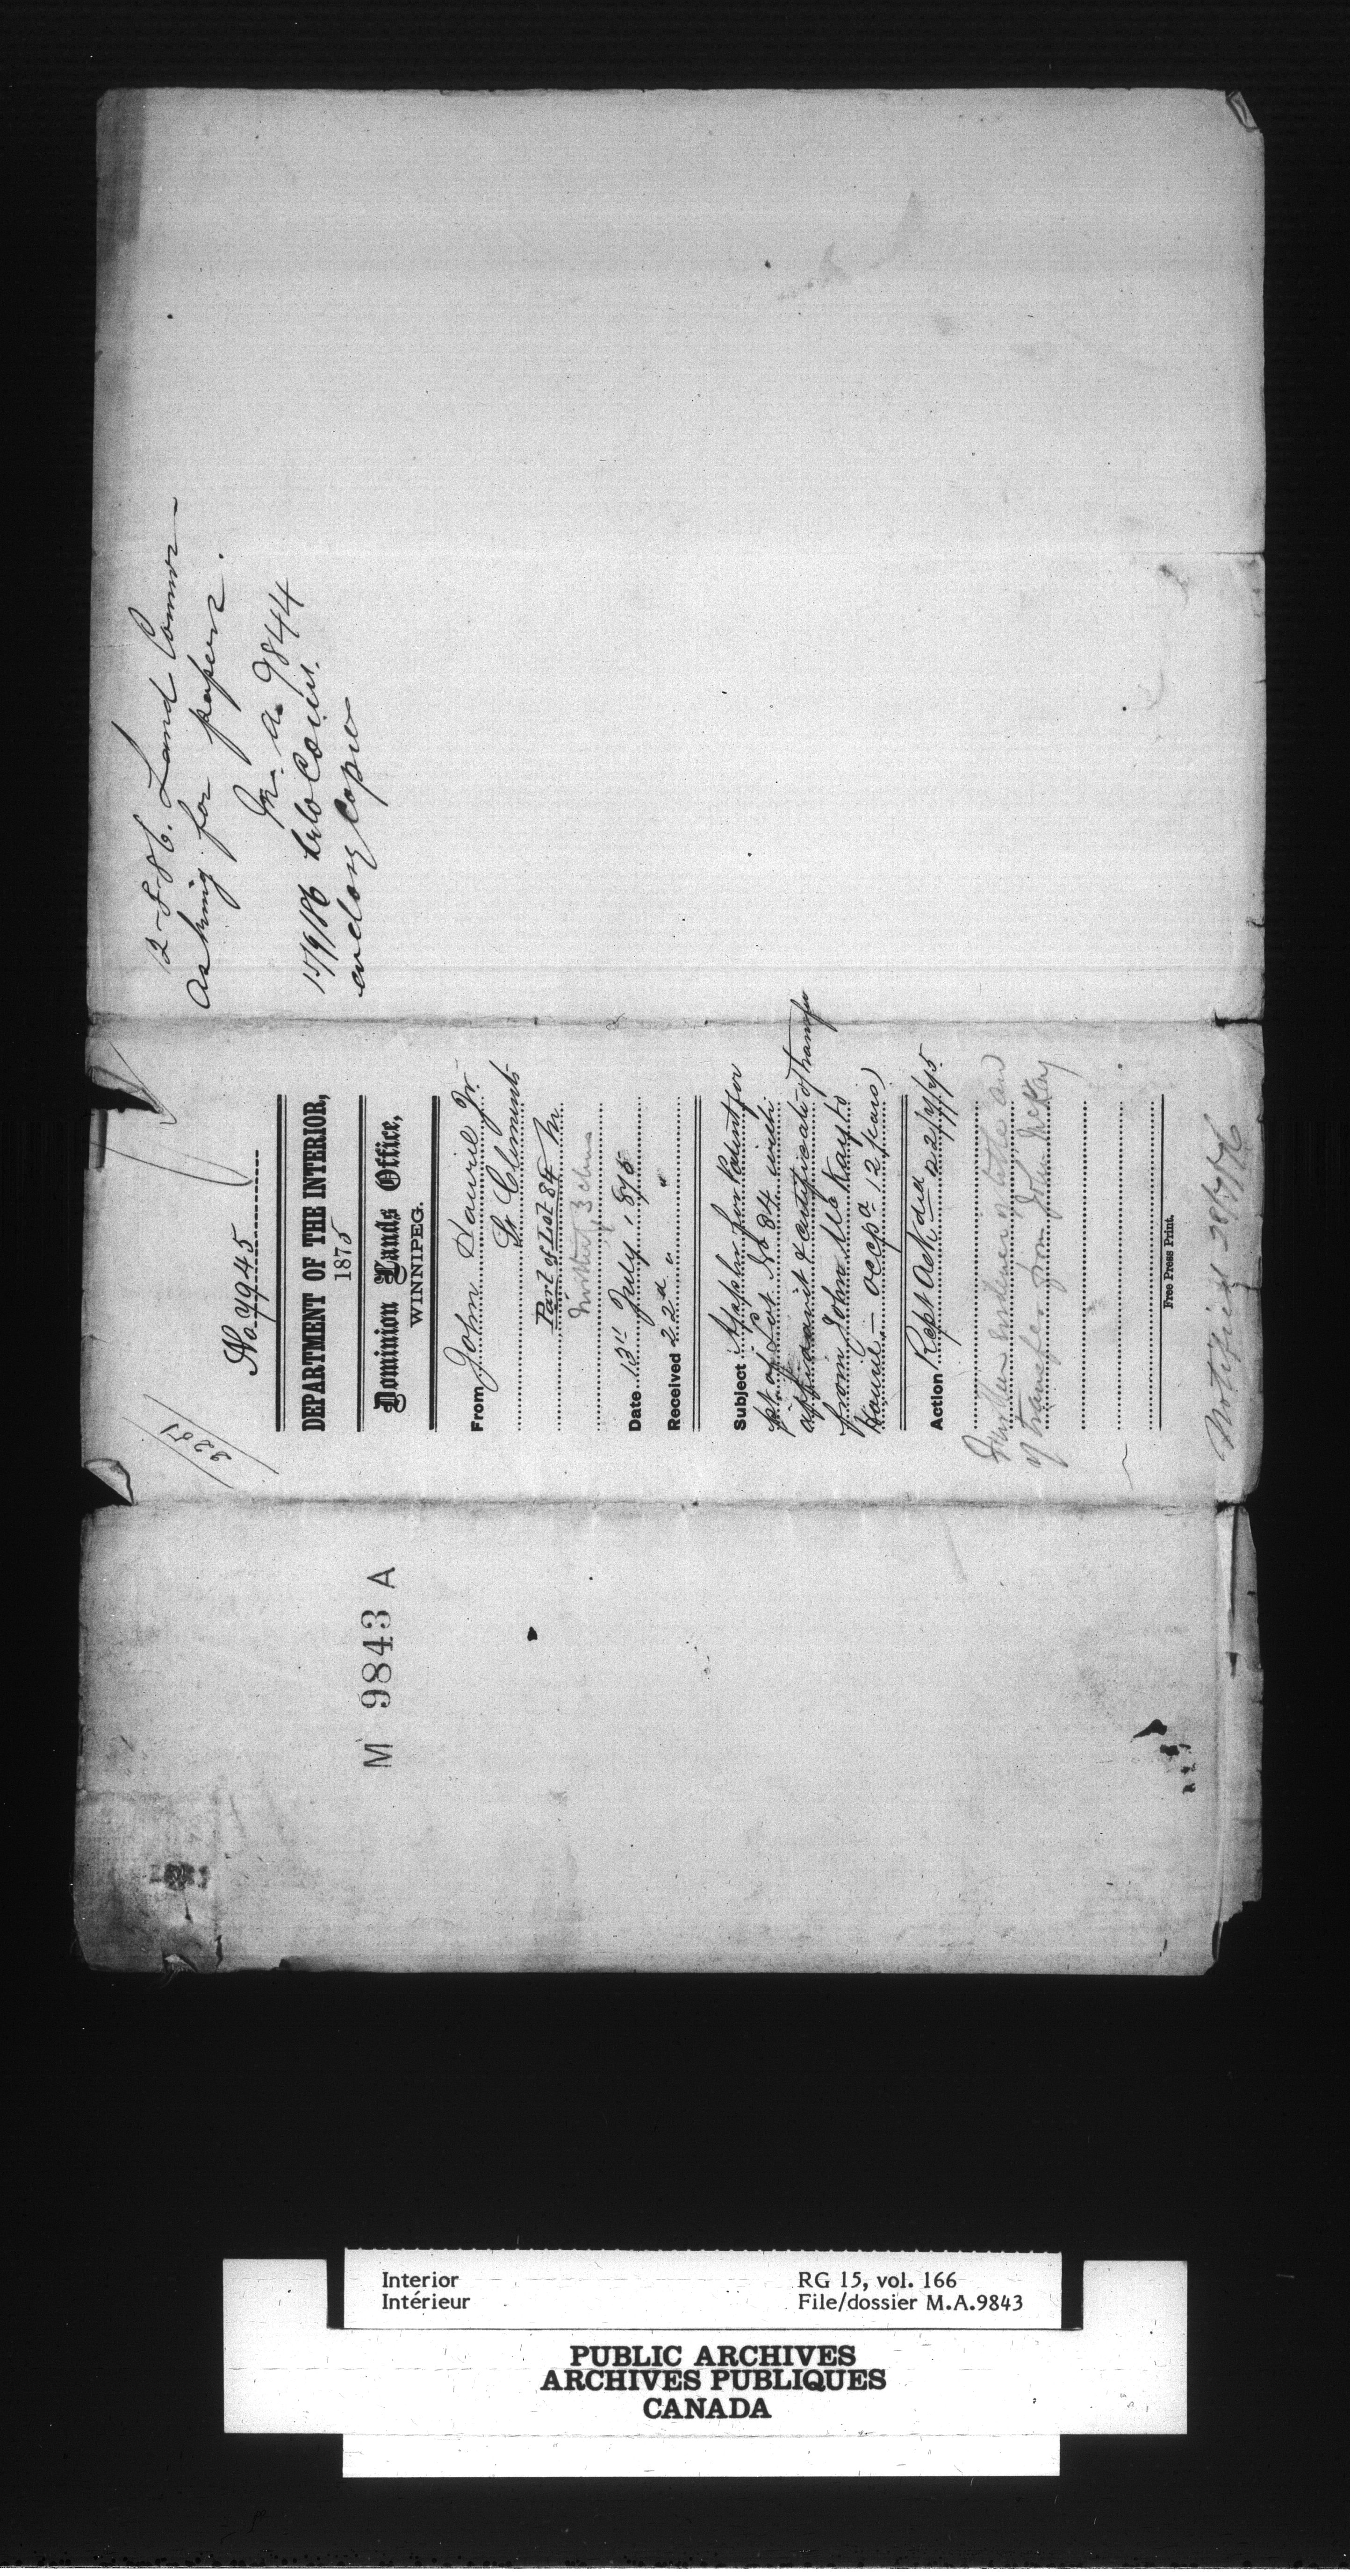 12-8-86. Land Commr
asking for papers.
M. A. 9844
15/9/86 to Comr.
enclosg Copies
3251
No 7945
DEPARTMENT OF THE INTERIOR,
1875
Dominion Lands Office,
WINNIPEG.
From John Hourie Jr.
St Clements
Part of Lot 84
3 chns
Date 13" July, 875
Received 22d " "
Subject Appln for Patent for
pt of Lot No 84 with
affidavit & certificate of transfer
from John McKay to
Hourie – occpn 12 years)
Action Rept Ackd 22/7/75
Further evidence
of transfer from John McKay
Free Press Print.
Notified 28/7/76
M 9843 A
Interior
Intérieur
RG 15, vol. 166
File/dossier M.A.9843
PUBLIC ARCHIVES
ARCHIVES PUBLIQUES
CANADA